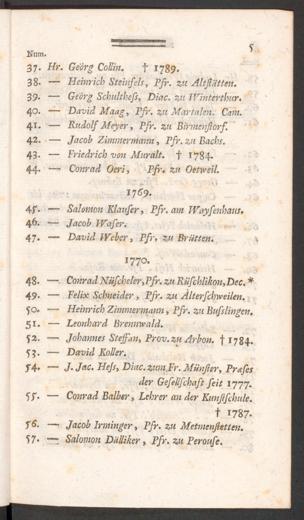 5
Num.
37. Hr. Geörg Collin. † 1789.
38. — Heinrich Steinfels, Pfr. zu Altstätten.
39. — Geörg Schultheſs, Diac. zu Winterthur.
40. — David Maag, Pfr. zu Martalen. Cam.
41. — Rudolf Meyer, Pfr. zu Birmenſtorf.
42. — Jacob Zimmermann, Pfr. zu Bachs.
43. — Friedrich von Muralt. † 1784.
44. — Conrad Oeri, Pfr. zu Oetweil.
1769.
45. — Salomon Klauſer, Pfr. am Wayſenhaus.
46. — Jacob Waſer.
47. — David Weber, Pfr. zu Brütten.
1770.
48. — Conrad Nüſcheler, Pfr. zu Rüſchlikon, Dec. *
49. — Felix Schneider, Pfr. zu Alterſchweilen.
50. — Heinrich Zimmermann, Pfr. zu Buſslingen.
51. — Leonhard Brennwald.
52. — Johannes Steffan, Prov. zu Arbon. † 1784.
53. — David Koller.
54. — J. Jac. Heſs, Diac. zum Fr. Münſter, Præſes
der Geſellſchaft seit 1777.
55. — Conrad Balber, Lehrer an der Kunſtſchule.
† 1787.
56. — Jacob Irminger, Pfr. zu Metmenſtetten.
57. — Salomon Dälliker, Pfr. zu Perouse.